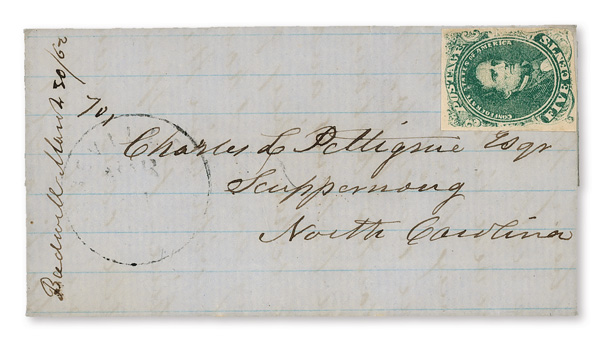 To,
Charles L Pettigrue Esqr
Scuppernong
North Carolina
Badwell March 30/62
POSTAGE
CONFEDERATE STATES OF AMERICA
FIVE CENTS